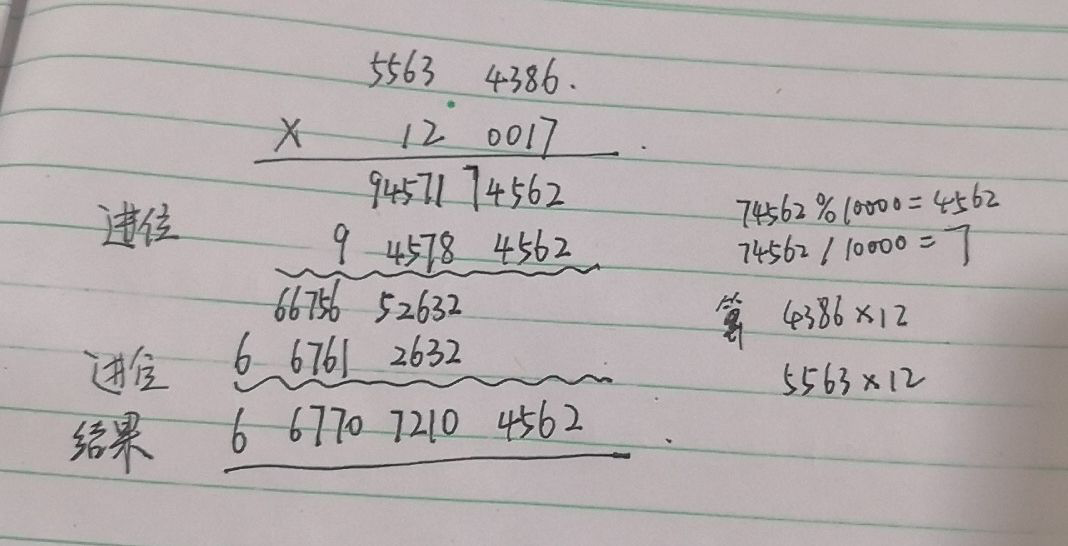 5563 4386.
× 12 0017
94571 74562
进位 9 4578 4562
66756 52632
进位 6 6761 2632
结果 6 6770 7210 4562
74562 % 10000 = 4562
74562 / 10000 = 7
算 4386 × 12
5563 × 12